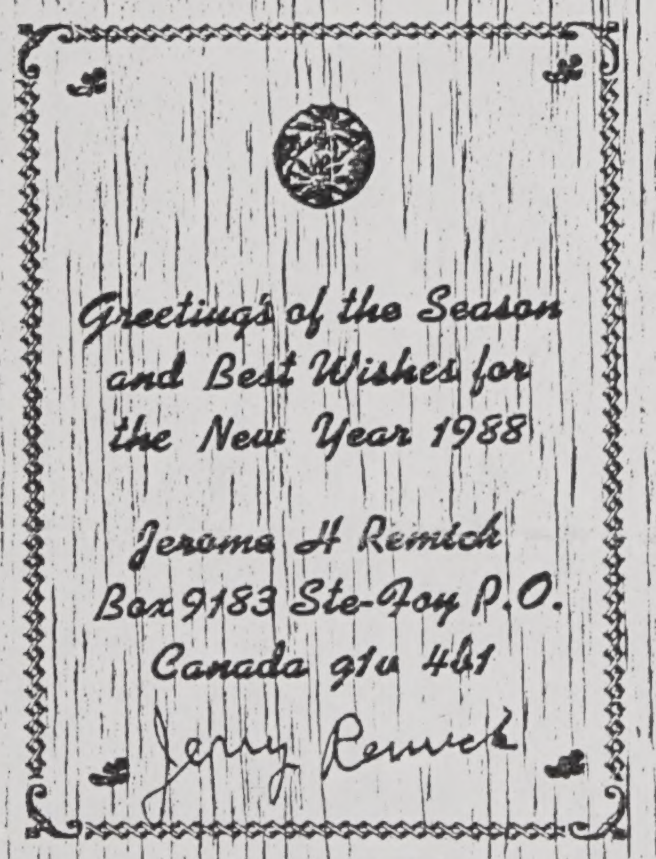 Greeting's of the Season
and Best Wishes for
the New Year 1988
Jerome H Remick
Box 9183 Ste-Foy P.O.
Canada g1v 4b1
Jerry Remick